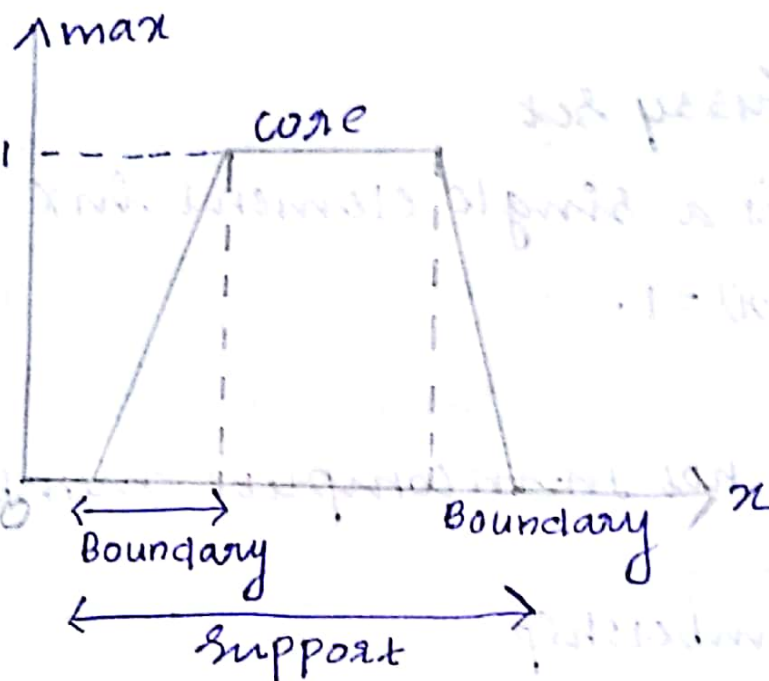 max
core
1
0
x
Boundary
Boundary
Support